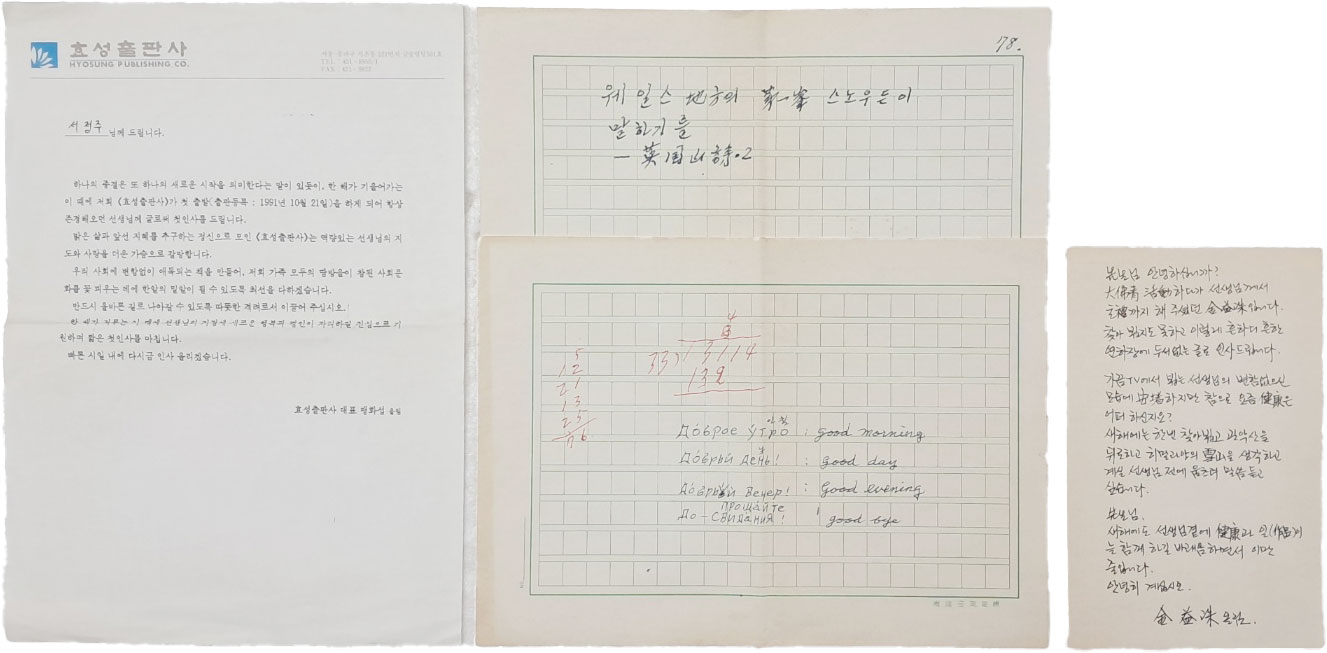 효성출판사
HYOSUNG PUBLISHING CO.
서정주 님께 드립니다.
하나의 종결은 또 하나의 새로운 시작을 의미한다는 말이 있듯이, 한 해가 기울어가는
이 때에 저희 《효성출판사》가 첫 출발(출판등록 : 1991년 10월 21일)을 하게 되어 항상
존경해오던 선생님께 글로써 첫인사를 드립니다.
맑은 삶과 앞선 지혜를 추구하는 정신으로 모인 《효성출판사》는 역량있는 선생님의 지
도와 사랑을 더운 가슴으로 갈망합니다.
우리 사회에 변함없이 애독되는 책을 만들어, 저희 가족 모두의 땀방울이 참된 사회문
화를 꽃 피우는 데에 한알의 밀알이 될 수 있도록 최선을 다하겠습니다.
반드시 올바른 길로 나아갈 수 있도록 따뜻한 격려로서 이끌어 주십시오.
원하며 짧은 첫인사를 마칩니다.
빠른 시일 내에 다시금 인사 올리겠습니다.
효성출판사 대표 올림
78.
웨일스 地方의 第一峯 스노우든이
말하기를
— 英国山詩·2
4
33) 3114
132
5
12
21
13
25
76
Доброе утро : good morning
Добрый день! : good day
Добрый вечер! : Good evening
прощайте
До-свидания! good bye
先生님 안녕하십니까?
大佛靑 活動하다가 선생님께서
主禮까지 해 주셨던 金益洙입니다.
찾아 뵙지도 못하고 이렇게 흔하디 흔한
연하장에 두서없는 글로 인사드립니다.
가끔 TV에서 뵙는 선생님의 변함없으신
모습에 安堵하지만 참으로 요즘 健康은
어떠 하신지요?
새해에는 한번 찾아뵙고 관악산을
뒤로하고 히말라야의 雪山을 생각하고
계실 선생님 전에 엎드려 말씀 듣고
싶습니다.
先生님.
새해에도 선생님곁에 健康과
늘 함께 하길 바래옵하면서 이만
줄입니다.
안녕히 계십시오.
金益洙 올림.